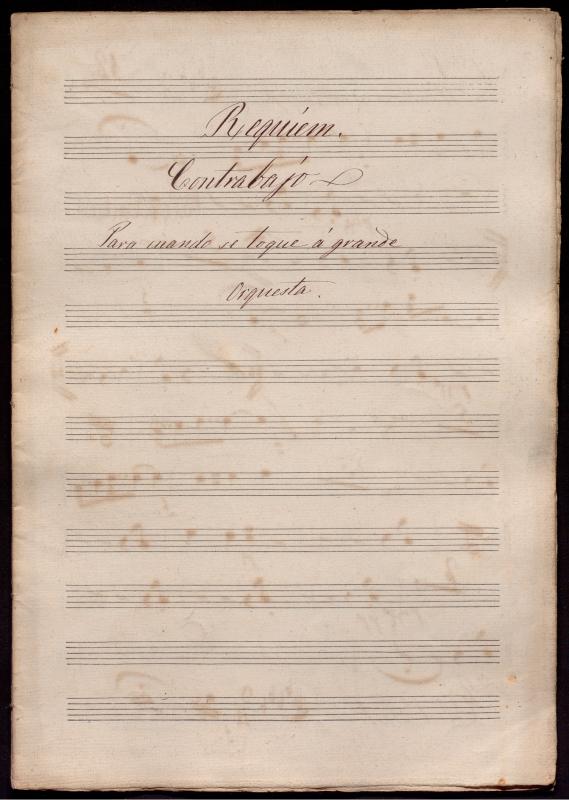 Requiem.
Contrabajo
Para cuando se toque á grande
Orquesta.